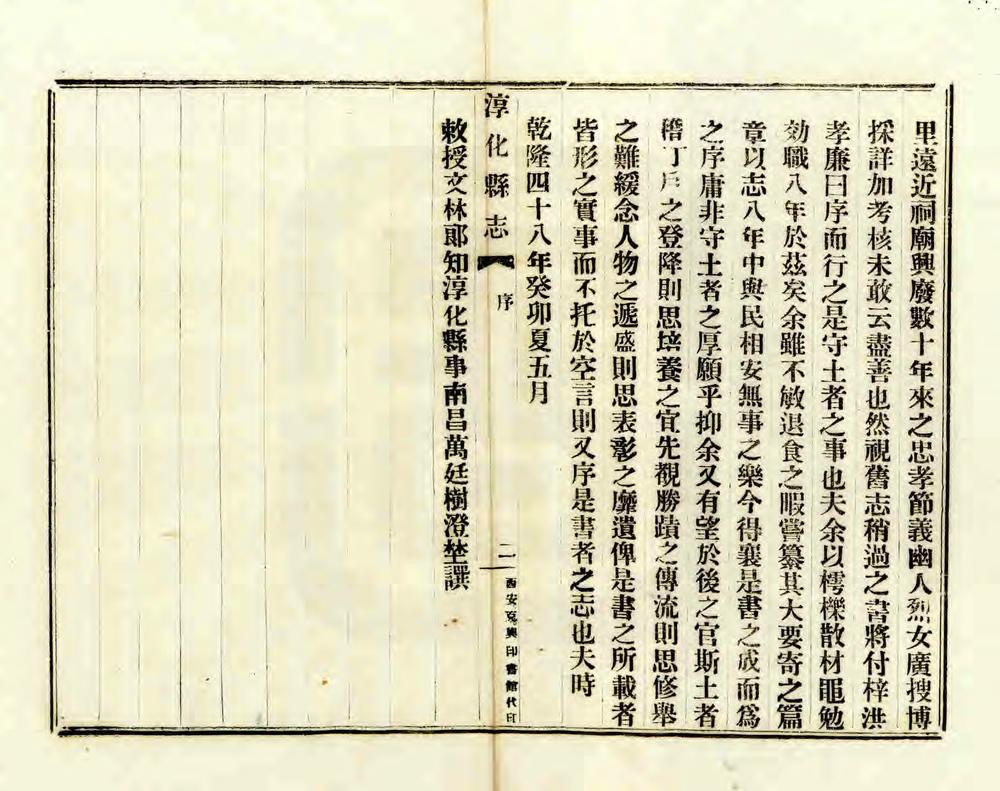 里遠近祠廟興廢數十年來之忠孝節義幽人烈女廣搜博
採詳加考核未敢云盡善也然視舊志稍過之書將付梓洪
孝廉曰序而行之是守土者之事也夫余以樗櫟散材黽勉
効職八年於茲矣余雖不敏退食之暇嘗纂其大要寄之篇
章以志八年中與民相安無事之樂今得襄是書之成而爲
之序庸非守土者之厚願乎抑余又有望於後之官斯土者
稽丁戶之登降則思培養之宜先覩勝蹟之傳流則思修舉
之難緩念人物之遞盛則思表彰之靡遺俾是書之所載者
皆形之實事而不托於空言則又序是書者之志也夫時
乾隆四十八年癸卯夏五月
淳化縣志 序 二 西安克興印書館代印
敕授文林郎知淳化縣事南昌萬廷樹澄埜譔